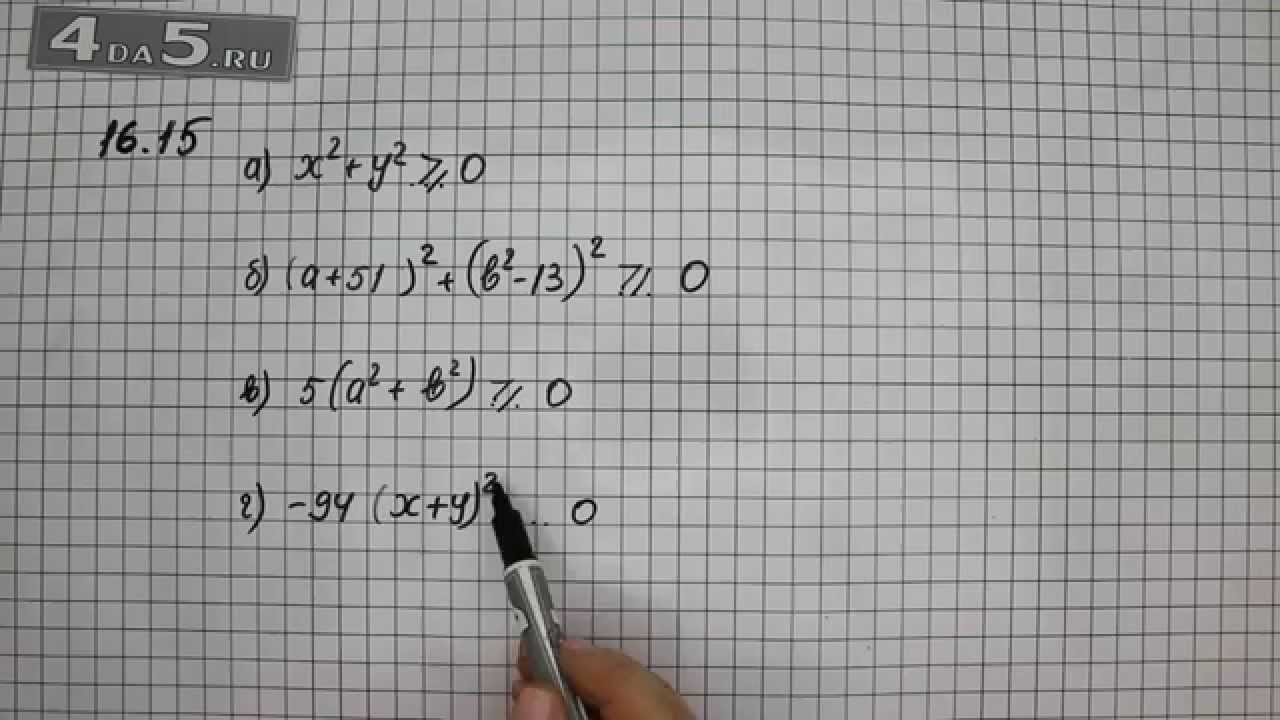 4DA5.RU
16.15
а) x² + y² ⩾ 0
б) (a+51)² + (b²-13)² ⩾ 0
в) 5(a² + b²) ⩾ 0
г) -94 (x+y)² .. 0